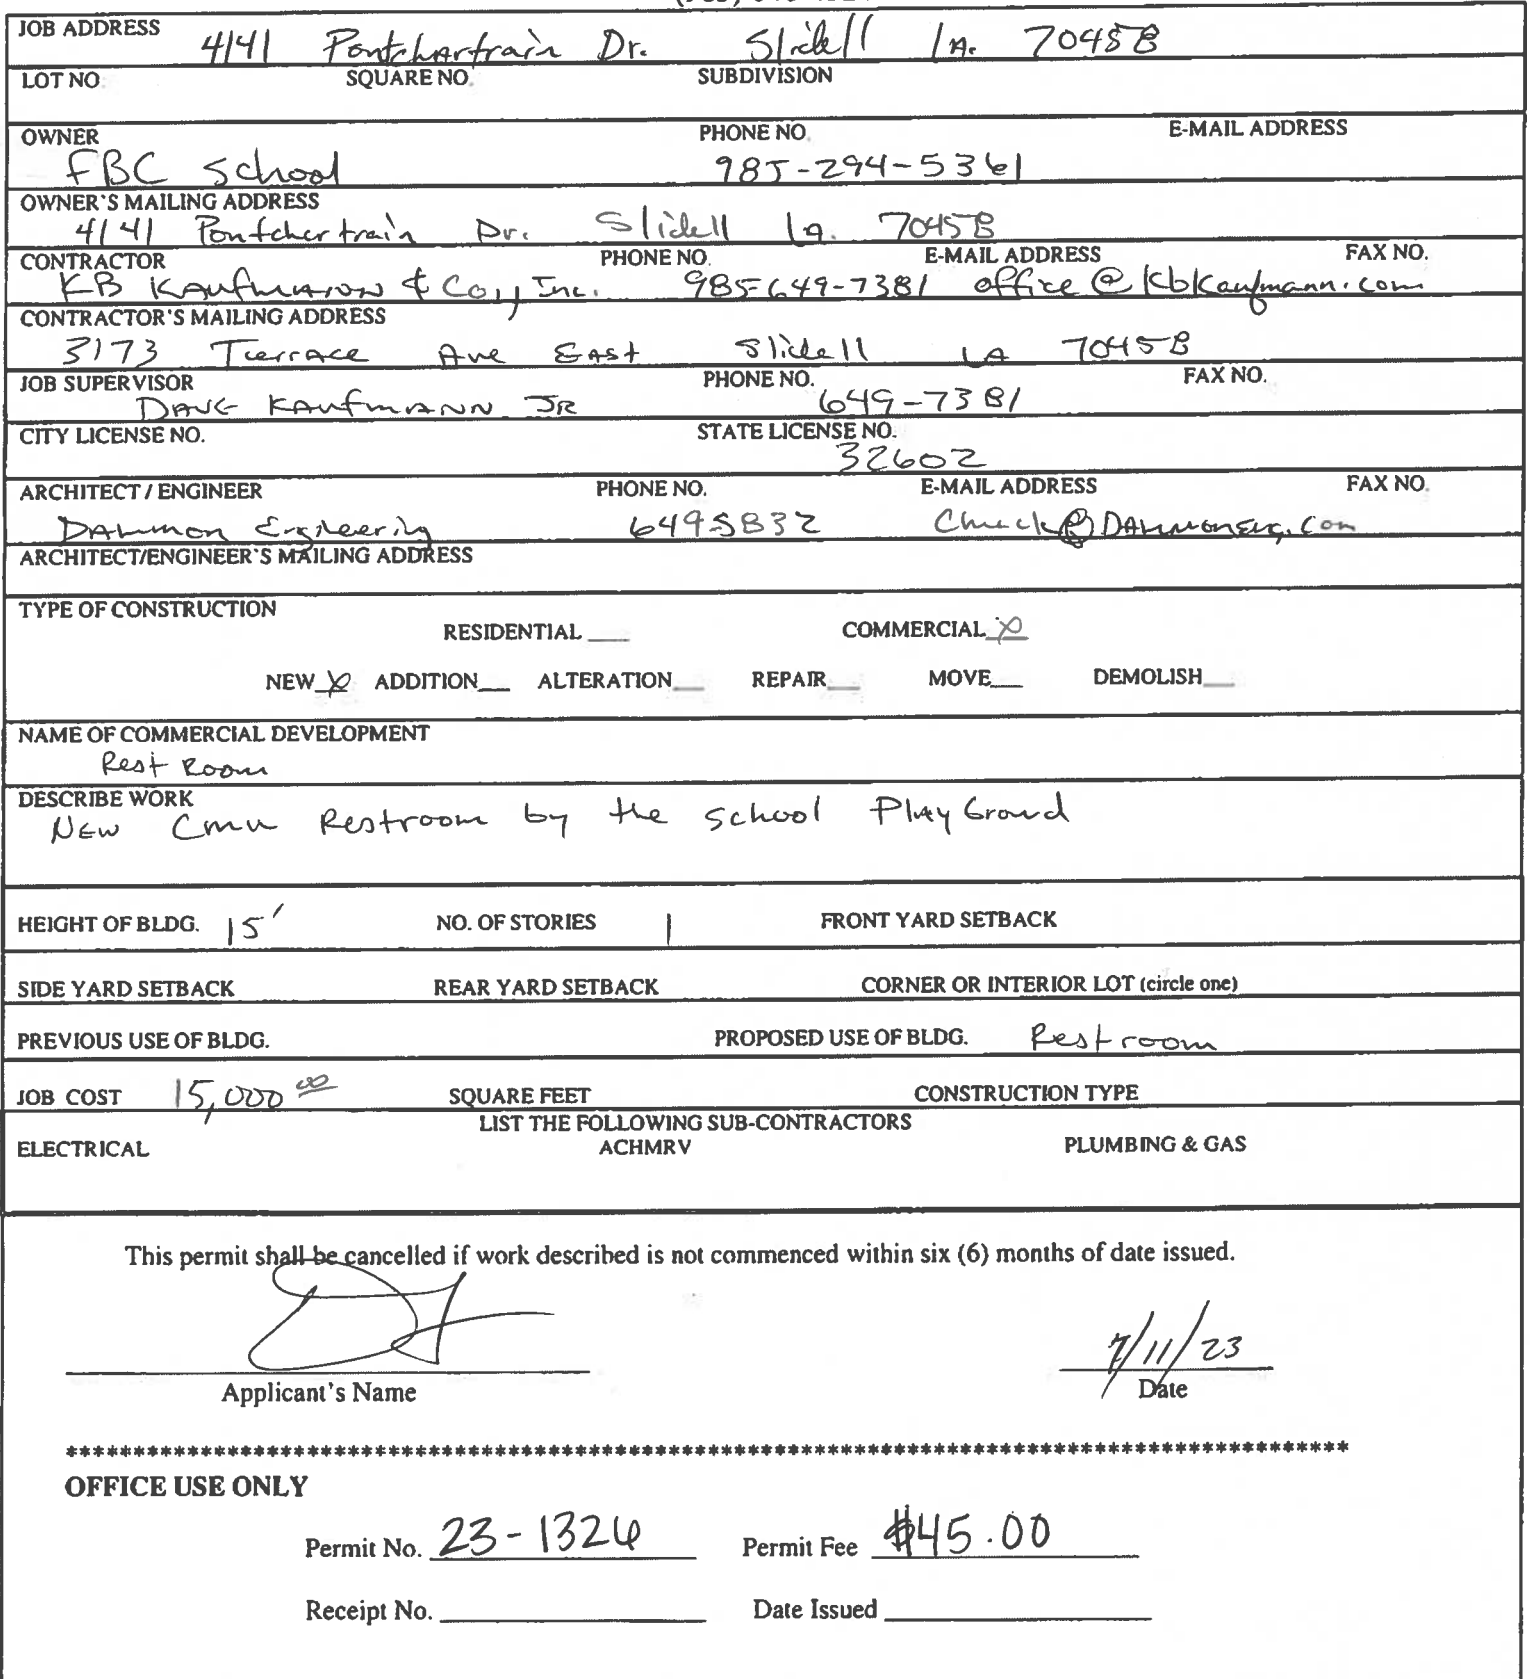 JOB ADDRESS 4141 Pontchartrain Dr. Slidell LA. 70458
LOT NO. SQUARE NO. SUBDIVISION
OWNER PHONE NO. E-MAIL ADDRESS
FBC School 985-294-5361
OWNER'S MAILING ADDRESS
4141 Pontchertrain Dr. Slidell La. 70458
CONTRACTOR PHONE NO. E-MAIL ADDRESS FAX NO.
KB Kaufmann & Co., Inc. 985-649-7381 office@kbkaufmann.com
CONTRACTOR'S MAILING ADDRESS
3173 Terrace Ave East Slidell LA 70458
JOB SUPERVISOR PHONE NO. FAX NO.
DAVE KAUFMANN JR 649-7381
CITY LICENSE NO. STATE LICENSE NO.
32602
ARCHITECT / ENGINEER PHONE NO. E-MAIL ADDRESS FAX NO.
649-5832
ARCHITECT/ENGINEER'S MAILING ADDRESS
TYPE OF CONSTRUCTION
RESIDENTIAL ___ COMMERCIAL X
NEW X ADDITION___ ALTERATION___ REPAIR___ MOVE___ DEMOLISH___
NAME OF COMMERCIAL DEVELOPMENT
Rest Room
DESCRIBE WORK
New Cmu Restroom by the School PlayGround
HEIGHT OF BLDG. 15' NO. OF STORIES 1 FRONT YARD SETBACK
SIDE YARD SETBACK REAR YARD SETBACK CORNER OR INTERIOR LOT (circle one)
PREVIOUS USE OF BLDG. PROPOSED USE OF BLDG. Restroom
JOB COST 15,000 00 SQUARE FEET CONSTRUCTION TYPE
LIST THE FOLLOWING SUB-CONTRACTORS
ELECTRICAL ACHMRV PLUMBING & GAS
This permit shall be cancelled if work described is not commenced within six (6) months of date issued.
7/11/23
Applicant's Name Date
**********************************************************************************************
OFFICE USE ONLY
Permit No. 23-1326 Permit Fee $45.00
Receipt No. ___ Date Issued ___